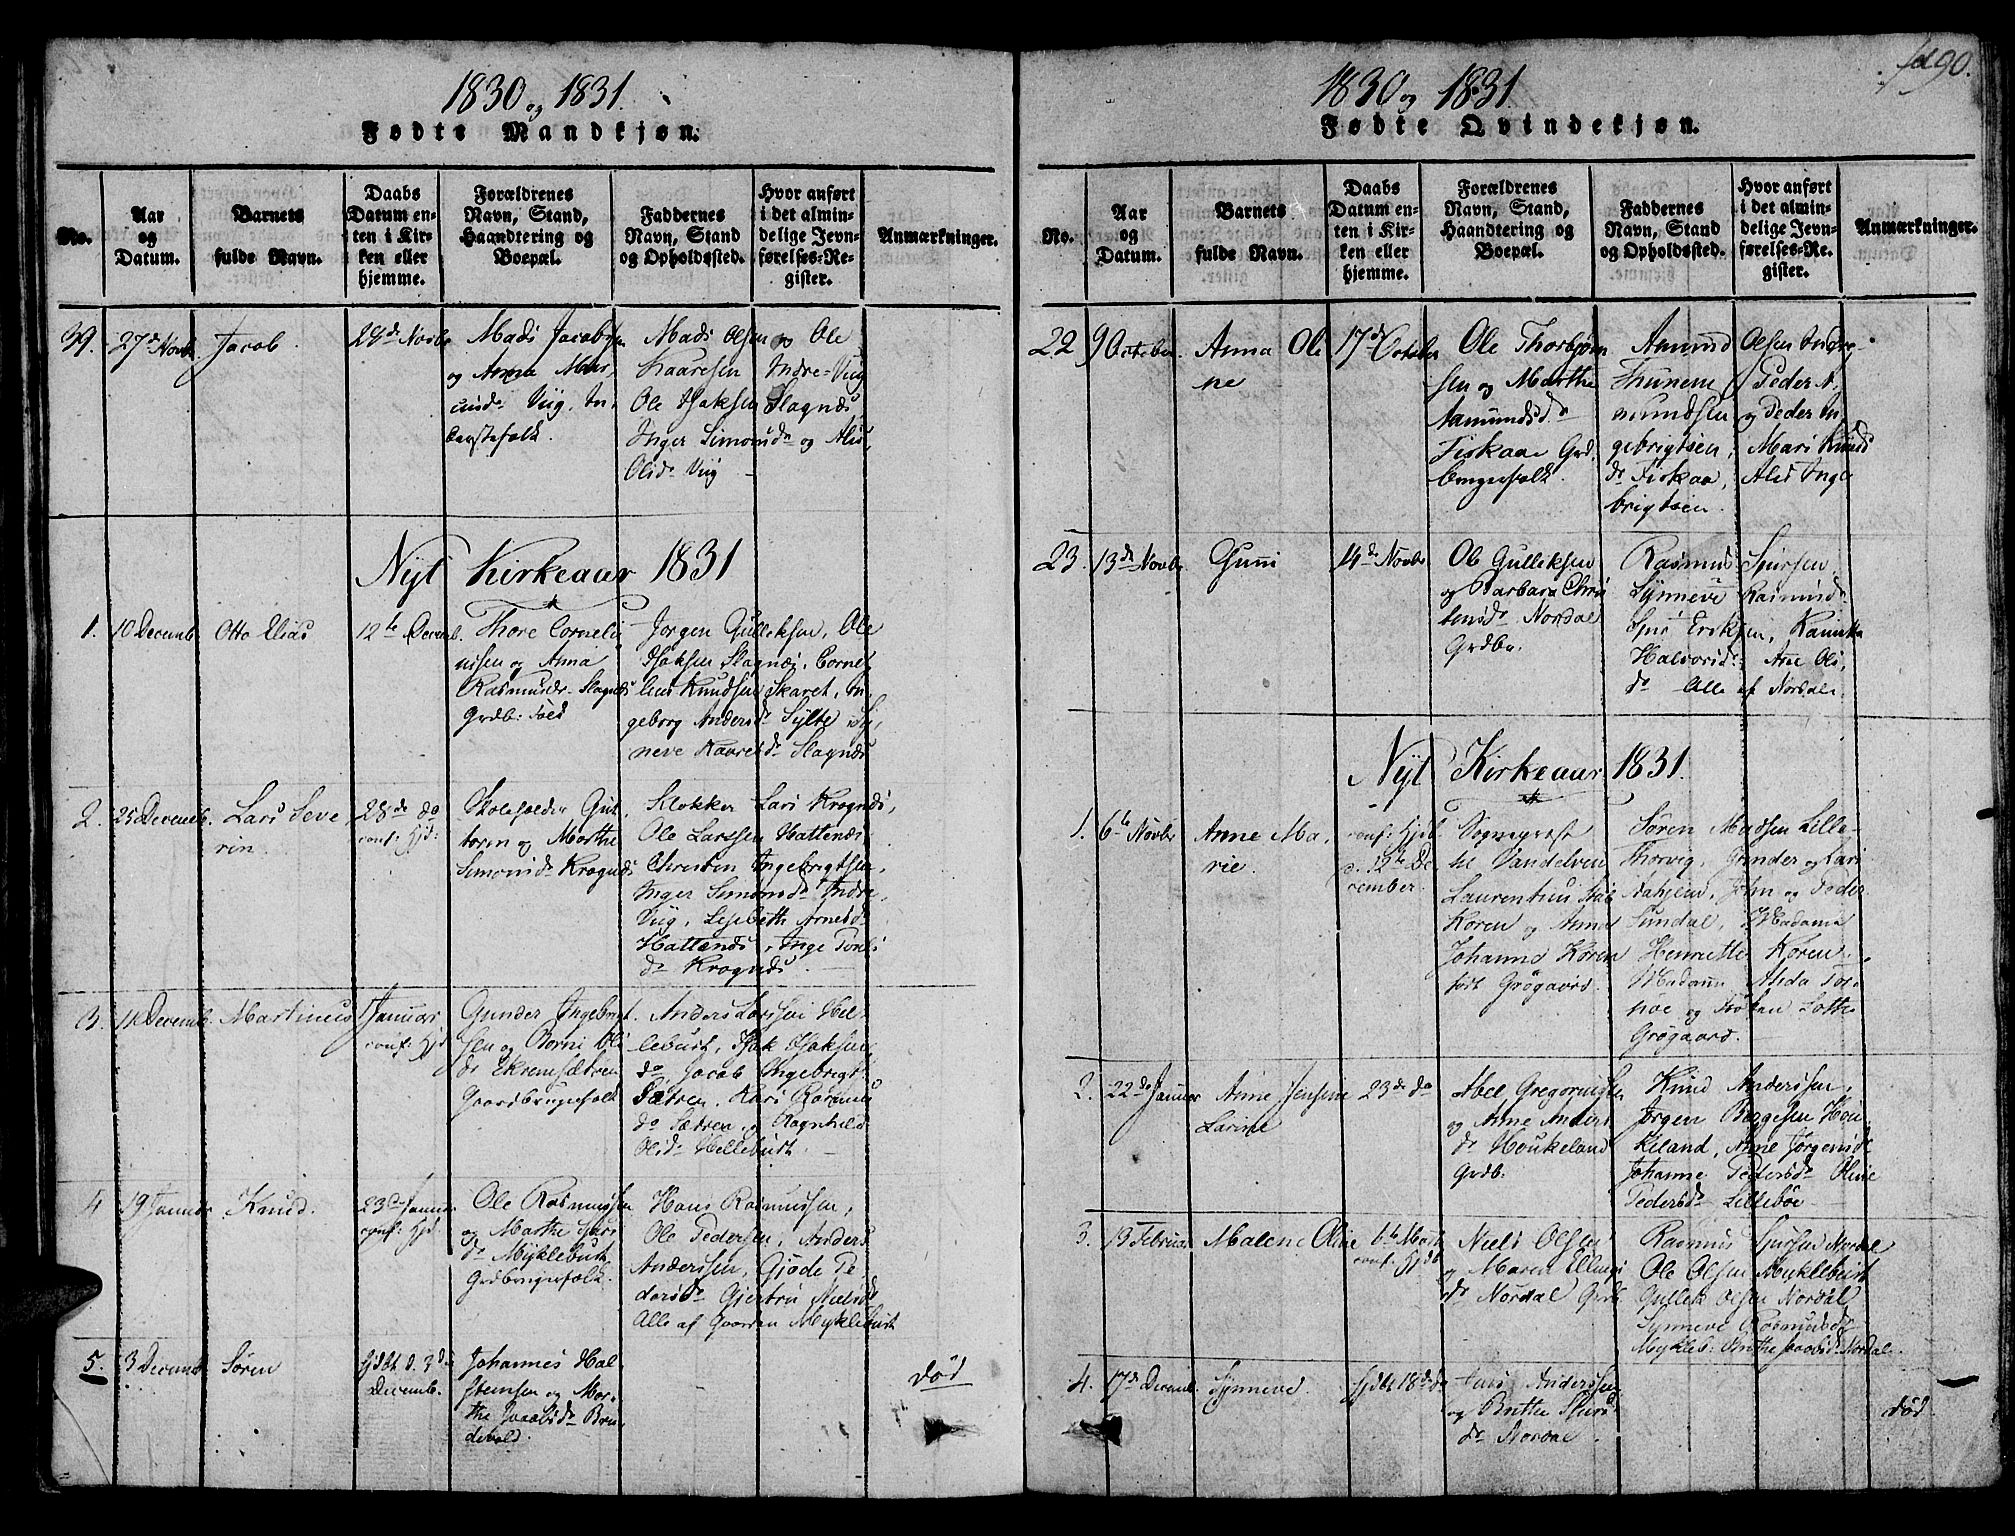 1830 og 1831.
Fødte Mandkjøn.
No.
Aar
og
Datum.
Barnets
fulde Navn.
Daabs
Datum en-
ten i Kir-
ken eller
hjemme.
Forældrenes
Navn, Stand,
Haandtering og
Boepæl.
Faddernes
Navn, Stand
og Opholdssted.
Hvor anført
i det almin-
delige Jevn-
førelses-Re-
gister.
Anmærkninger.
39.
27de Novb.
Jacob.
28de Novbr
Mads Jacobsen
og Anna Mar,
Viig. In,
derstefolk.
Mads Olsen og Ole
Kaaresen Indre-Viig
Ole Isaksen Slagnæs
Inger Simonsdr og Alis
Olsdr Viig
Nyt Kirkeaar 1831
1.
10 Decemb.
Otto Elias
12te Decemb.
Thore Corneli
ussen og Anna
Rasmusdr Slagnæs
Grdb: Folk
Jørgen Gulliksen, Ole
Isaksen Slagnæs, Corne,
lius Knudsen Skaret, In,
geborg Andersdr Sylte, Sy,
neve Kaaresdr Slagnæs
2.
25 Decemb.
Lars Seve
rin.
28de do
conf: Hjd:
Skoleholder Gut
torm og Marthe
Simonsdr Kragnæs
Klokker Lars Kragnæs,
Ole Larssen Hattenæs
Christen Ingebrigtsen,
Inger Simonsdr Indre
Viig, Lisebeth Arnesdr
Hattenæs, Inge Povls
dr Kragnæs.
3.
11 Decemb.
Martinus
1 Januar
conf: Hjd
Gunder Ingebrigt
sen og Berni Ols
dr Ekremsætren
Gaardbrugerfolk
Anders Larssen Hel-
lebust, Isak Isaksen
do Jacob Ingebrigt-
Sætren, Kari Rasmus
dr Sætren, og Ragnhild
Olsdr Hellebust.
4
19 Januar
Knud.
23de Januar
conf: Hjd.
Ole Rasmussen
og Marthe
dr Myklebust
Grdbrugerfolk.
Hans Rasmussen,
Ole Pedersen, Anders
Anderssen, Gjøde Pe-
dersdr Gjertru Nielsdr
Alle af Gaarden Myklebust
5.
3 Decemb
Søren
Hjdbt d. 3de
Decemb.
Johannes Hal
steinsen og Mar-
the Jacobsdr Bru
devold.
død
190.
1830 og 1831
Fødte Qvindekjøn.
No.
Aar
og
Datum.
Barnets
fulde Navn.
Daabs
Datum en-
ten i Kir-
ken eller
hjemme.
Forældrenes
Navn, Stand,
Haandtering og
Boepæl.
Faddernes
Navn, Stand
og Opholdssted.
Hvor anført
i det almin-
delige Jevn-
førelses-Re-
gister.
Anmærkninger.
22
9 October.
Anna Ole
ne
17de October
Ole Thorbjørn
sen og Marthe
Aamundsdr
Fiskaae Grd.
brugerfolk.
Amund Olsen Indre
Thunem Peder A,
mundsen og Peder In
gebrigtsen, Mari Knuds
dr Fiskaa, Alis Inge
brigtsen.
23.
13de Novbr
Guni
14de Novbr
Ole Gulliksen
og Barbara Chri
stensdr Nordal
Grdbr.
Rasmus Sjursen,
Synneve Rasmusdr
Eriksen,
Halvorsdr: Ane Ols,
dr Alle af Nordale
Nyt Kirkeaar 1831.
1.
6te Novbr
Anne Ma,
rie.
conf: Hjd.
d. 12te De
cember.
Sogneprest
til Vandelven
Laurentius
Koren og Anna
Johanne Koren
født Grøgaard.
Søren Madsen Lille-
Thorvig, Gunder og Lars
Aahjem, John og Peder
Sundal, Madame
Henriette Koren,
Madame Alida
og Frøken Lotte
Grøgaard.
2.
22de Januar
Anne Jensine
Larine
23de do
Abel Gregoriussen
og Anne Anders
dr Houkeland
Grdb.
Knud Anderssen,
Jørgen Baggesen Hou
keland, Anne Jørgensdr
Johanne Pedersdr Oline
Pedersdr Lillebøe
3.
13 Februar
Malene Oline
6te Marts
conf: Hjdb
Niels Olsen
og Maren Ellings
dr Nordal Grdb
Rasmus Sjursen Nordal
Ole Olsen Myklebust
Gullik Olsen Nordal
Synneve Rasmusdr
Mykleb: Anthe Jacobsdr Nordal.
4.
17de Decemb.
Synneve.
Hjdbt 18de do
Anderssen
og Brithe Sjurs
dr Nordal.
død.